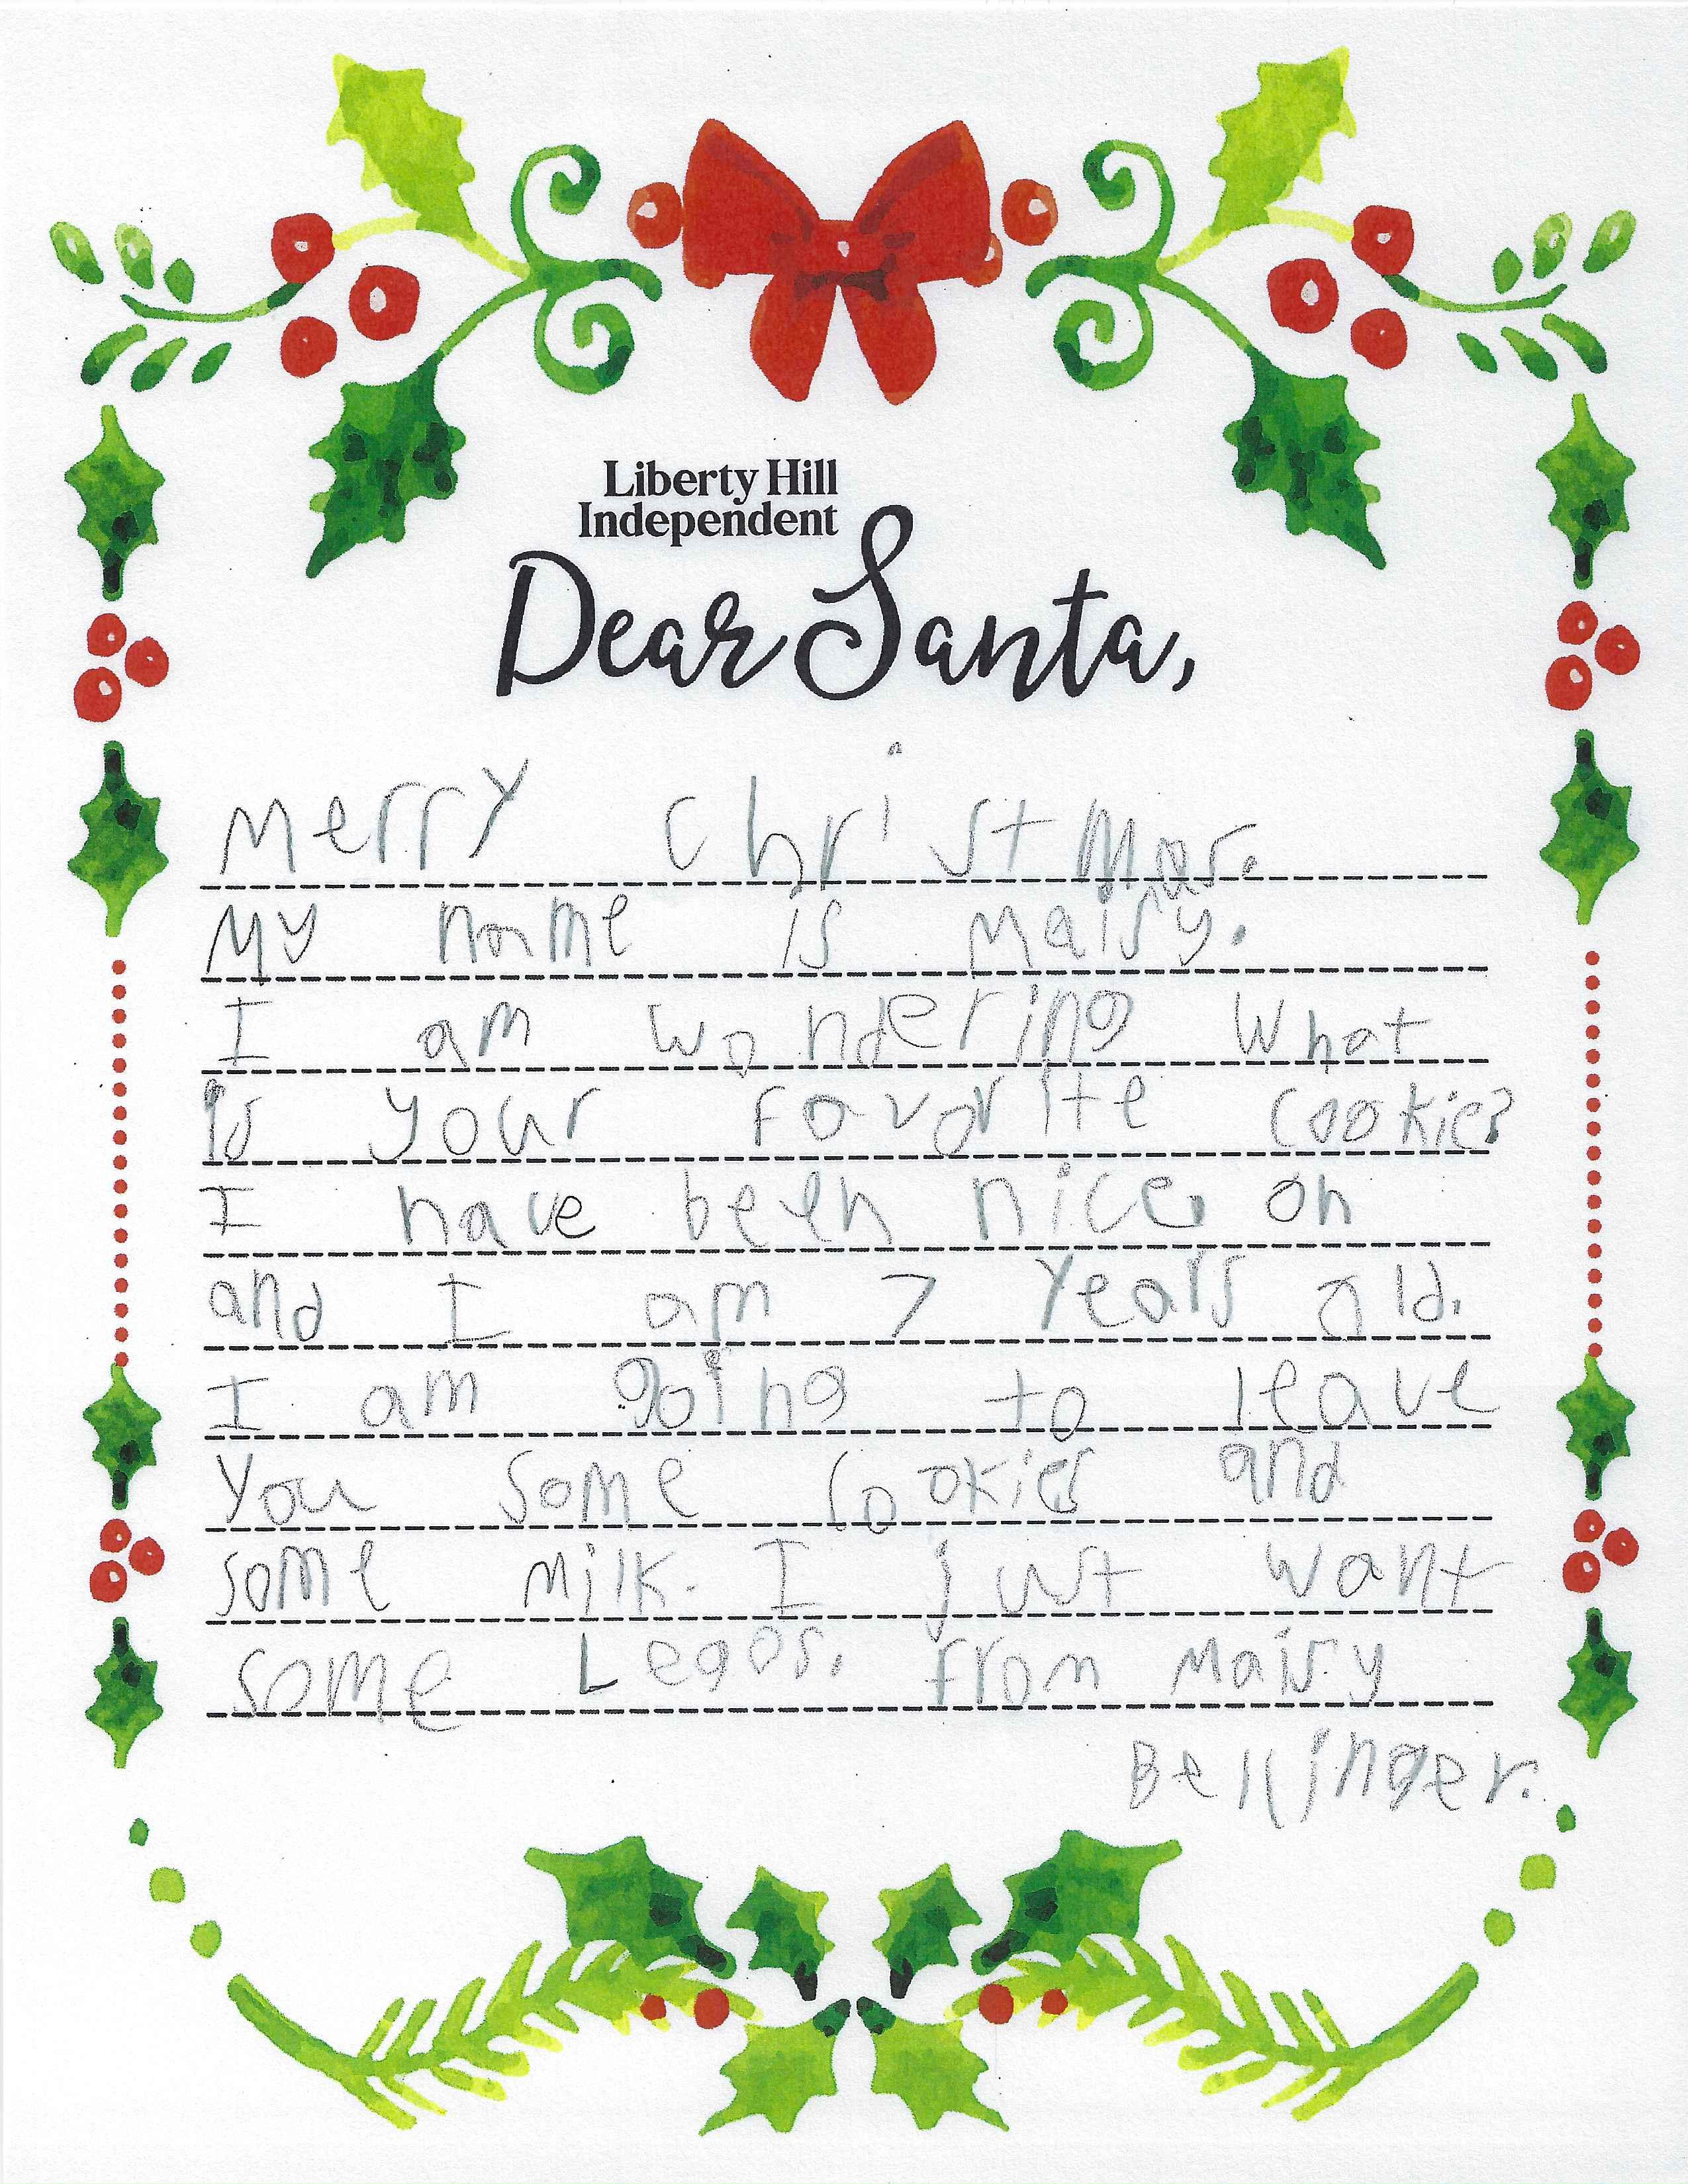 Liberty Hill
Independent
Dear Santa,
Merry Christmas.
My name is Maisy.
I am wondering What
is your favorite cookie?
I have been nice. oh
and I am 7 years old.
I am going to leave
you some cookies and
some milk. I just want
some Legos. from Maisy
Bellinger.